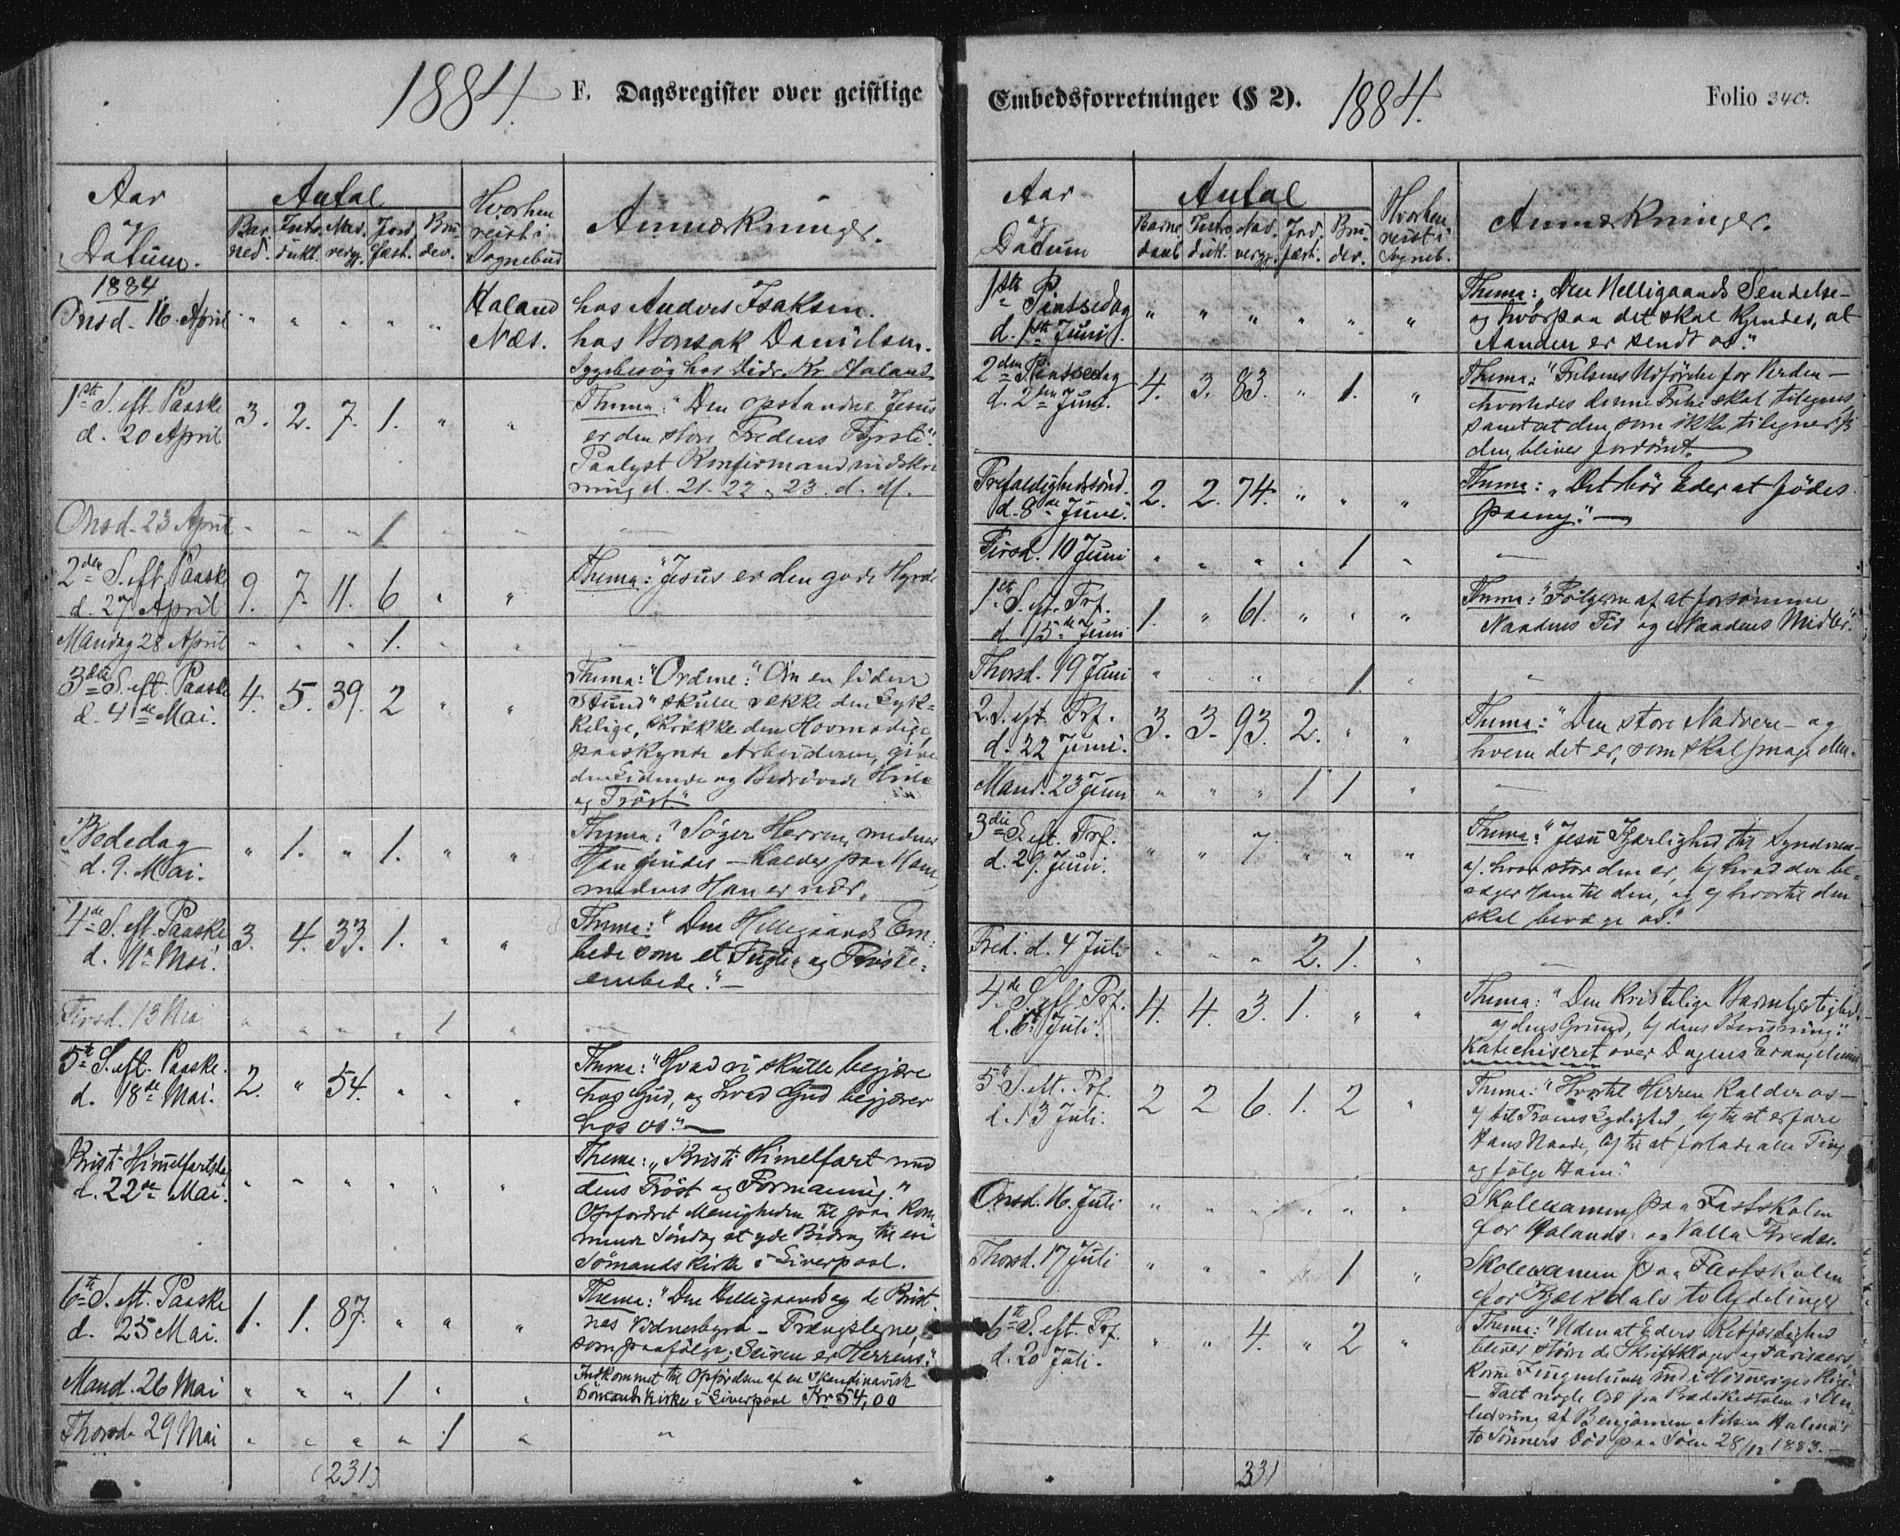 1884. F. Dagsregister over geistlige
Aar og Datum. Antal Hvorhen reist i Sognebud Anmærkninger.
Bar. ned. Intro. dukt. Nad. verg. Jord. fæst. Bru. dev.
1884
Onsd. 16 April " " " " " Haland hos Anders Isaksen.
Næs. hos Bonsak Danielsen.
Sygebesøg hos Didr. Kr. Haland
1ste S. eft. Paaske
d. 20 April 3. 2. 7. 1. " " Thema: "Den opstandne Jesus
er den store Fredens Fyrste".
Paalyst Konfirmandindskri
ning d. 21. 22 & 23. d. M.
Onsd. 23 April " " " 1 " " "
2den S. eft. Paaske
d. 27 April 9. 7. 11. 6 " " Thema: "Jesus er den gode Hyrde
Mandag 28 April " " " 1. " " "
3die S. eft. Paaske
d. 4de Mai. 4. 5. 39. 2 " " Thema: "Ordene: "Om en liden
Stund" skulle vække den Lyk-
kelige, skrække den Hovmodige,
paaskynde Arbeideren, give
den Lidende og Bedrøvede Hvile
og Trøst"
Bededag
d. 9. Mai. " 1. " 1. " " Thema: "Søger Herren, medens
Han findes - kalder paa Ham,
medens Han er nær.
4de S. eft. Paaske
d. 11te Mai. 3. 4. 33. 1. " " Thema: "Den Helligaands Em-
bede som et Tugte- og Trøste-
embede." -
Tirsd. 13 Mai " " " " 1 " "
5te S. eft. Paaske.
d. 18de Mai. 2. " 54. " " " Thema: "Hvad vi skulle begjære
hos Gud, og hvad Gud begjærer
hos os." -
Kristi Himelfartsdag
d. 22de Mai. " " " " " " Thema: "Kristi Himelfart med
dens Trøst og Formaning."
Opfordret Menigheden til paa kom
mende Søndag at yde Bidrag til en
Sømandskirke i Liverpool.
6te S. eft. Paaske
d. 25 Mai. 1. 1. 87. " " " Thema: "Den Helligaands og de Krist-
nes Vidnesbyrd - Trængslerne,
som paafølge; Seiren er Herrens".
Mand. 26 Mai " " " 1 " " Indkommet til Opførelsen af en Skandinavisk
Sømandskirke i Liverpool Kr 54,00
Thorsd. 29 Mai " " " " 1 " "
(231)
Embedsforretninger (§ 2). 1884. Folio 340.
Aar og Datum Antal Hvorhen reist i Sogneb. Anmærkninger.
Barne daab Intro. dukt. Nad. verg. Jord. fæst. Bru- der.
1ste Pintsedag
d. 1ste Juni. " " " " " " Thema: "Den Helligaands Sendelse -
og hvorpaa det skal kjendes, at
Aanden er sendt os."
2den Pintsedag
d. 2den Juni. 4. 3. 83. " 1. " Thema: "Frelsens Udførelse for Verden -
hvorledes denne Frelse skal tilegnes,
samt at den, som ikke tilegner sig
den, bliver fordømt.
Trefoldighedssønd.
d. 8de Juni. 2. 2. 74. " " " Thema: "Det bør Eder at fødes
paany." -
Tirsd. 10 Juni " " " " 1 " "
1ste S. eft. Trf.
d. 15de Juni 1. " 61. " " " Thema: "Følgerne af at forsømme
Naadens Tid og Naadens Midler."
Thorsd. 19 Juni " " " " 1. " "
2. S. eft. Trf.
d. 22 Juni. 3. 3. 93. 2. " " Thema: "Den store Nadvere - og
hvem det er, som skal smage den.
Mand. 23 Juni " " " 1 1 " "
3die S. eft. Trf.
d. 29. Juni. " " 7. " " " Thema: "Jesu Kjærlighed til Synderen -
a/ hvor stor den er, b/ hvad der be-
væger Ham til den, og c/ hvortil den
skal bevæge os."
Fred. d. 4 Juli " " " 2. 1. " "
4de S. eft. Trf.
d. 6te Juli. 4. 4. 3. 1. " " Thema: "Den kristelige Barmhjertighed -
a/ dens Grund, b/ dens Bevisning."
Katechiseret over Dagens Evangelium
5te S. eft. Trf.
d. 13 Juli. 2 2 6. 1. 2 " Thema: "Hvortil Herren kalder os -
a/ til Troens Lydighed, b/ til at erfare
Hans Naade, c/ til at forlade alle Ting
og følge Ham."
Onsd. 16. Juli " " " " " " Skolexamen paa Fastskolen
for Halands og Valla Kredse.
Thorsd. 17 Juli " " " " 1 " Skolexamen paa Fastskolen
for to Afdelinger
6te S. eft. Trf.
d. 20 Juli. " " 4. " 2 " Thema: "Uden at Eders Retfærdighed
bliver større de Skriftkloges og Farisæers,
komme I ingenlunde ind i Himmeriges Rige"
- Talt nogle Ord fra Prædikestolen i An-
ledning af Benjamin Nilsen Halmøs
to Sønners Død paa Søen 28/12 1883. -
331